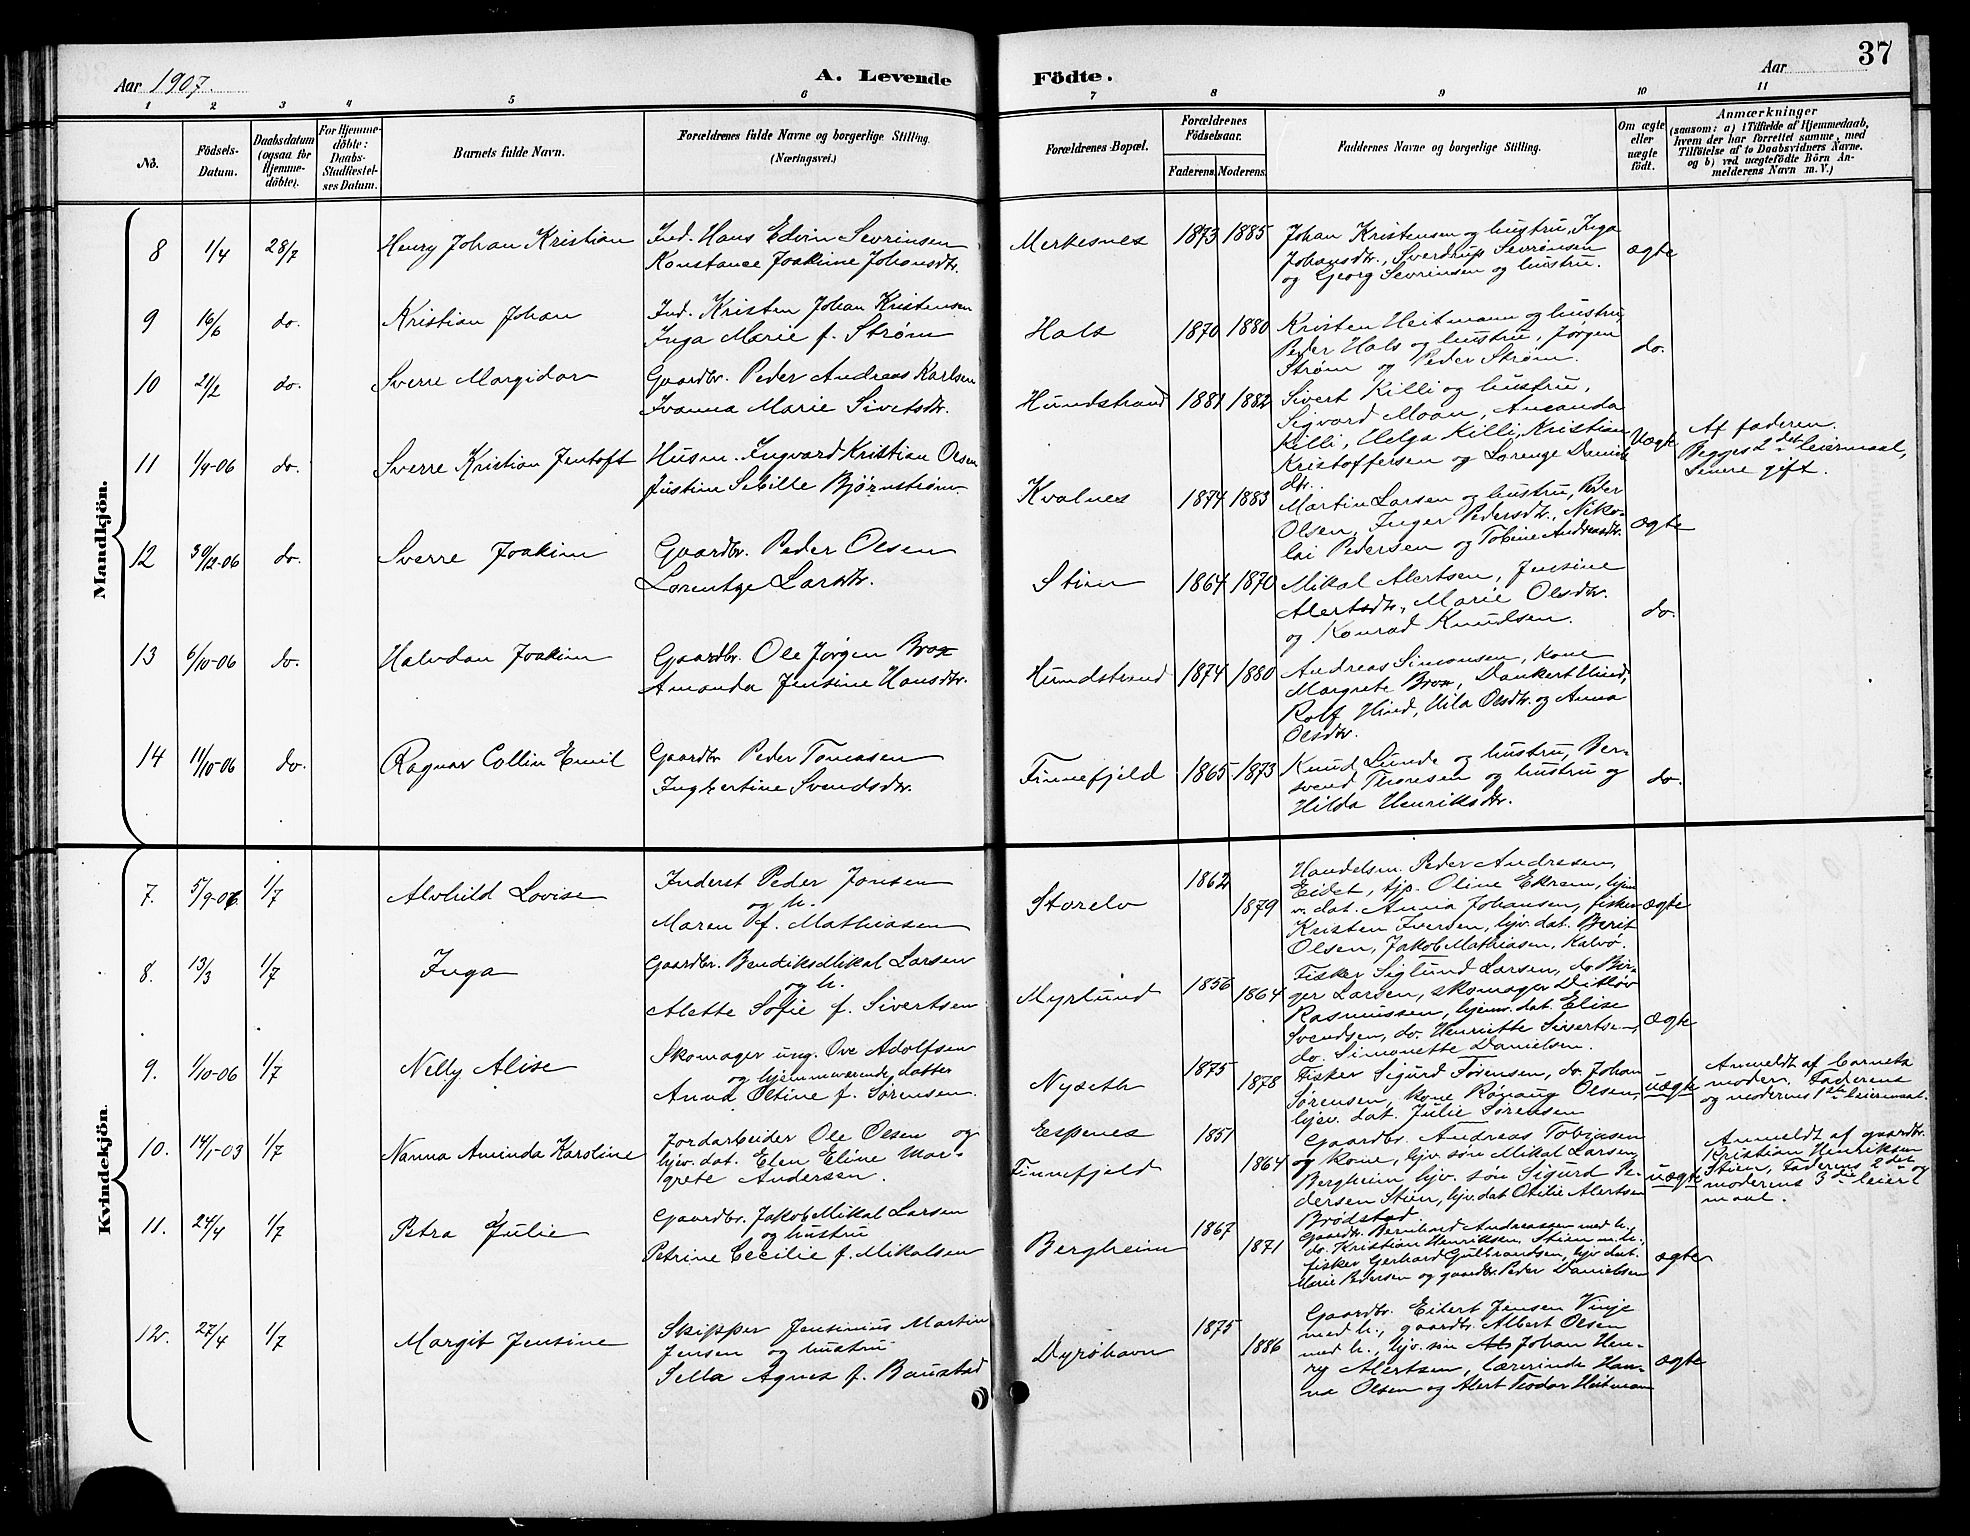 Aar 1907.
A. Levende
Födte.
Aar
37
1 2 3 4 5 6 7 8 9 10 11
No.
Födsels-
Datum.
Daabsdatum
(ogsaa for
Hjemme-
döbte).
For Hjemme-
döbte:
Daabs-
Stadfæstel-
ses Datum.
Barnets fulde Navn.
Forældrenes fulde Navne og borgerlige Stilling.
(Næringsvei.)
Forældrenes Bopæl.
Forældrenes
Födselsaar.
Faderens. Moderens.
Faddernes Navne og borgerlige Stilling.
Om ægte
eller
uægte
födt.
Anmærkninger
(saasom: a) i Tilfælde af Hjemmedaab,
hvem der har forrettet samme, med
Tilföielse af to Daabsvidners Navne.
og b) ved uægtefödte Börn An-
melderens Navn m. V.)
Mandkjön.
8 1/4 28/7 Henry Johan Kristian
Ind. Hans Edvin Sevrinsen
Konstance Joakime Johansdtr.
Merkesnes 1873 1885
Johan Kristensen og hustru, Inga
Johansdtr., Sverdrup Sevrinsen
og Georg Sevrinsen og hustru.
ægte
9 16/6 do. Kristian Johan
Ind. Kristen Johan Kristensen
Inga Marie f. Strøm
Hals 1870 1880
Kristen Heitmann og hustru
Peder Hals og hustru, Jørgen
Strøm og Peder Strøm.
do.
10 21/2 do. Sverre Margidor
Gaardbr. Peder Andreas Karlsen
Ivanna Marie Sivetsdtr.
Hundstrand 1881 1882
Sivert Killi og hustru,
Sigvard Moan, Amanda
Killi, Helga Killi, Kristian
Kristoffersen og Lorenze Daniels
dtr.
Uægte
Af faderen.
Begges 2det leiermaal,
Senere gift.
11 1/9-06 do. Sverre Kristian Jentoft
Husm. Ingvard Kristian Olsen
Justine Sibille Bjørnstrøm.
Kvalnes 1874 1883
Martin Larsen og hustru, Peder
Olsen, Inger Pedersdtr., Niko-
lai Pedersen og Tobine Andreasdtr.
ægte
12 30/12-06 do. Sverre Joakim
Gaardbr. Peder Olsen
Lorentze Larsdtr.
Stien 1864 1870
Mikal Alertsen, Jensine
Alertsdtr., Marie Olsdtr.
og Konrad Knudsen.
do.
13 6/10-06 do. Halvdan Joakim
Gaardbr. Ole Jørgen Brox
Amanda Jensine Hansdtr.
Hundstrand 1874 1880
Andreas Simonsen, kone
Margrete Brox, Dankert Hind,
Rolf Hind, Uila Olsdtr. og Anna
Olsdtr.
14 11/10-06 do. Ragnar Collin Emil
Gaardbr. Peder Tomasen
Ingbertine Svendsdtr.
Finnefjeld 1865 1873
Knud Lunde og hustru, Ber-
svend Thoresen og hustru og
Hilda Henriksdtr.
do.
Kvindekjön.
7. 5/9-06 1/7 Alvhild Lovise
Inderst Peder Jonsen
og h.
Maren f. Mathiasen
Storelv 1862 1879
Handelsm. Peder Andresen,
Eidet, tjp. Oline Ekrem, hjem
v. dat. Anna Johansen, fisker
Kristen Iversen, hjv. dat. Berit
Olsen, Jakob Mathiasen, Kalvø.
ægte
8. 13/3 1/7 Inga
Gaardbr. Bendiks Mikal Larsen
og h.
Alette Sofie f. Sivertsen
Myrlund 1856 1864
Fisker Siglund Larsen, do. Bir-
ger Larsen, skomager Ditløv
Rasmussen, hjemv. dat. Elise
Svendsen, do. Henriette Sivertsen,
do. Simonette Danielsen.
ægte
9. 1/10-06 1/7 Nelly Alise
Skomager ung. Ove Adolfsen
og hjemmeværende datter
Anna Oltine f. Sørensen.
Nysæth 1875 1878
Fisker Sigurd Sørensen, do. Johan
Sørensen, kone Rønaug Olsen,
hjv. dat. Julie Sørensen
uægte
Anmeldt af barnets
moder. Faderens
og moderens 1ste leiermaal.
10. 14/1-03 1/7 Nanna Aminda Karoline
Jordarbeider Ole Olsen og
hjv. dat. Elen Eline Mar-
grete Andersen.
Espenes 1851
Finnefjeld 1864
Gaardbr. Andreas Tobiasen
og kone, hjv. søn Mikal Larsen,
Bergheim, hjv. søn Sigurd Pe-
dersen Stien, hjv. dat Otilie Alertsen
Brødstad
uægte
Anmeldt af gaardbr.
Kristian Henriksen
Stien, Faderens 2det og
moderens 3die leier-
maal.
11. 24/4 1/7 Petra Julie
Gaardbr. Jakob Mikal Larsen
og hustru
Petrine Cecilie f. Mikalsen
Bergheim 1867 1871
Gaardbr. Bernhard Andreassen med h.,
do. Kristian Henriksen, Stien m. h.,
fisker Gerhard Gulbrandsen, hjv. dat.
Marie Pedersen og gaardbr. Peder Danielsen
ægte
12. 27/4 1/7 Margit Jensine
Skipper Jensinius Martin
Jensen og hustru
Sella Agnes f. Baustad
Dyrøhavn 1875 1886
Gaardbr. Eilert Jensen Vinje
med h., gaardbr. Albert Olsen
med h., hjv. søn Johan Hen-
ry Alertsen, lærerinde Han-
na Olsen og Alert Teodor Heitmann
ægte